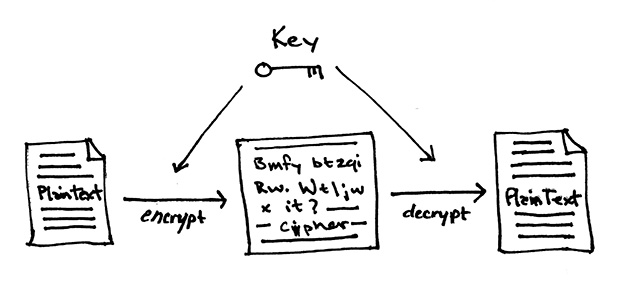 Key
PlainText
encrypt
Bmfy btzqi
Rw. Wtljw
x it?
Cipher
decrypt
PlainText